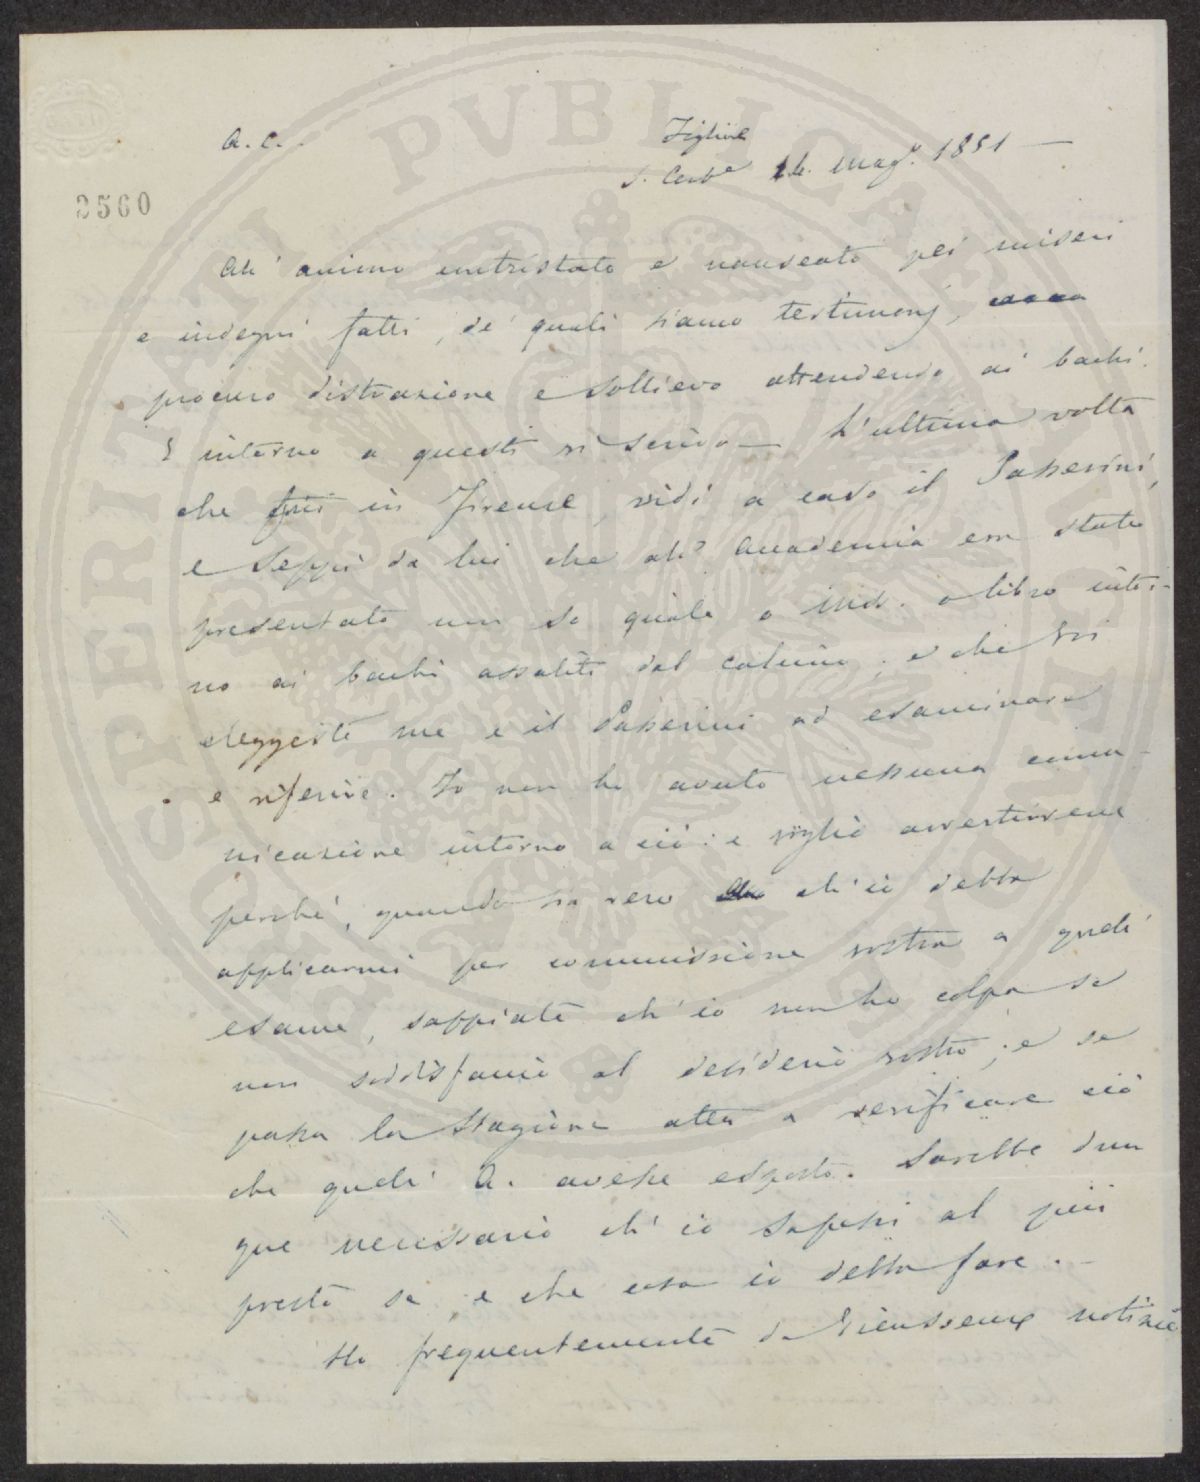 A. C.
Figline
S. Cerb.e 16. Mag.o 1851 —
2560
All' animo contristato e nauseato pei miseri
e indegni fatti, de' quali siamo testimonj,
procuro distrazione e sollievo attendendo ai bachi.
E intorno a questi vi scrivo — L'ultima volta
che fui in Firenze, vidi a caso il Passerini,
e seppi da lui che all' Accademia era stato
presentato non so quale o Mss. o libro intor-
no ai bachi assaliti dal calcino; e che Voi
eleggeste me e il Passerini ad esaminare
e riferire. Io non ho avuto nessuna comu-
nicazione intorno a ciò: e voglio avvertirvene
perché, quando sia vero ch' io debba
applicarmi per commissione vostra a quell'
esame, sappiate ch' io non ho colpa se
non soddisfaccio al desiderio vostro; e se
passa la stagione atta a verificare ciò
che quell' A. avesse esposto. Sarebbe dun
que necessario ch' io sapessi al più
presto se, e che cosa io debba fare. —
Ho frequentemente da Vieusseux notizie
PVBLICAE PROSPERITATI